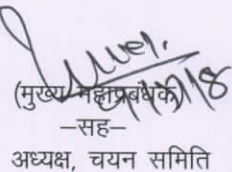 (मुख्य महाप्रबंधक)
–सह–
अध्यक्ष, चयन समिति